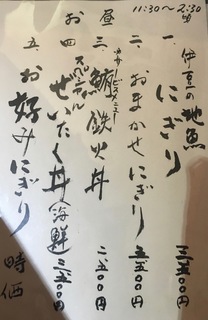 11:30～2:30
お昼
一、伊豆の地魚
にぎり 三.五〇〇円
二、おまかせにぎり 五.五〇〇円
三、サービスメニュー
鮪鉄火丼 二.五〇〇円
四、スペシャル
ぜいたく丼(海鮮) 三.五〇〇円
五、お好みにぎり 時価